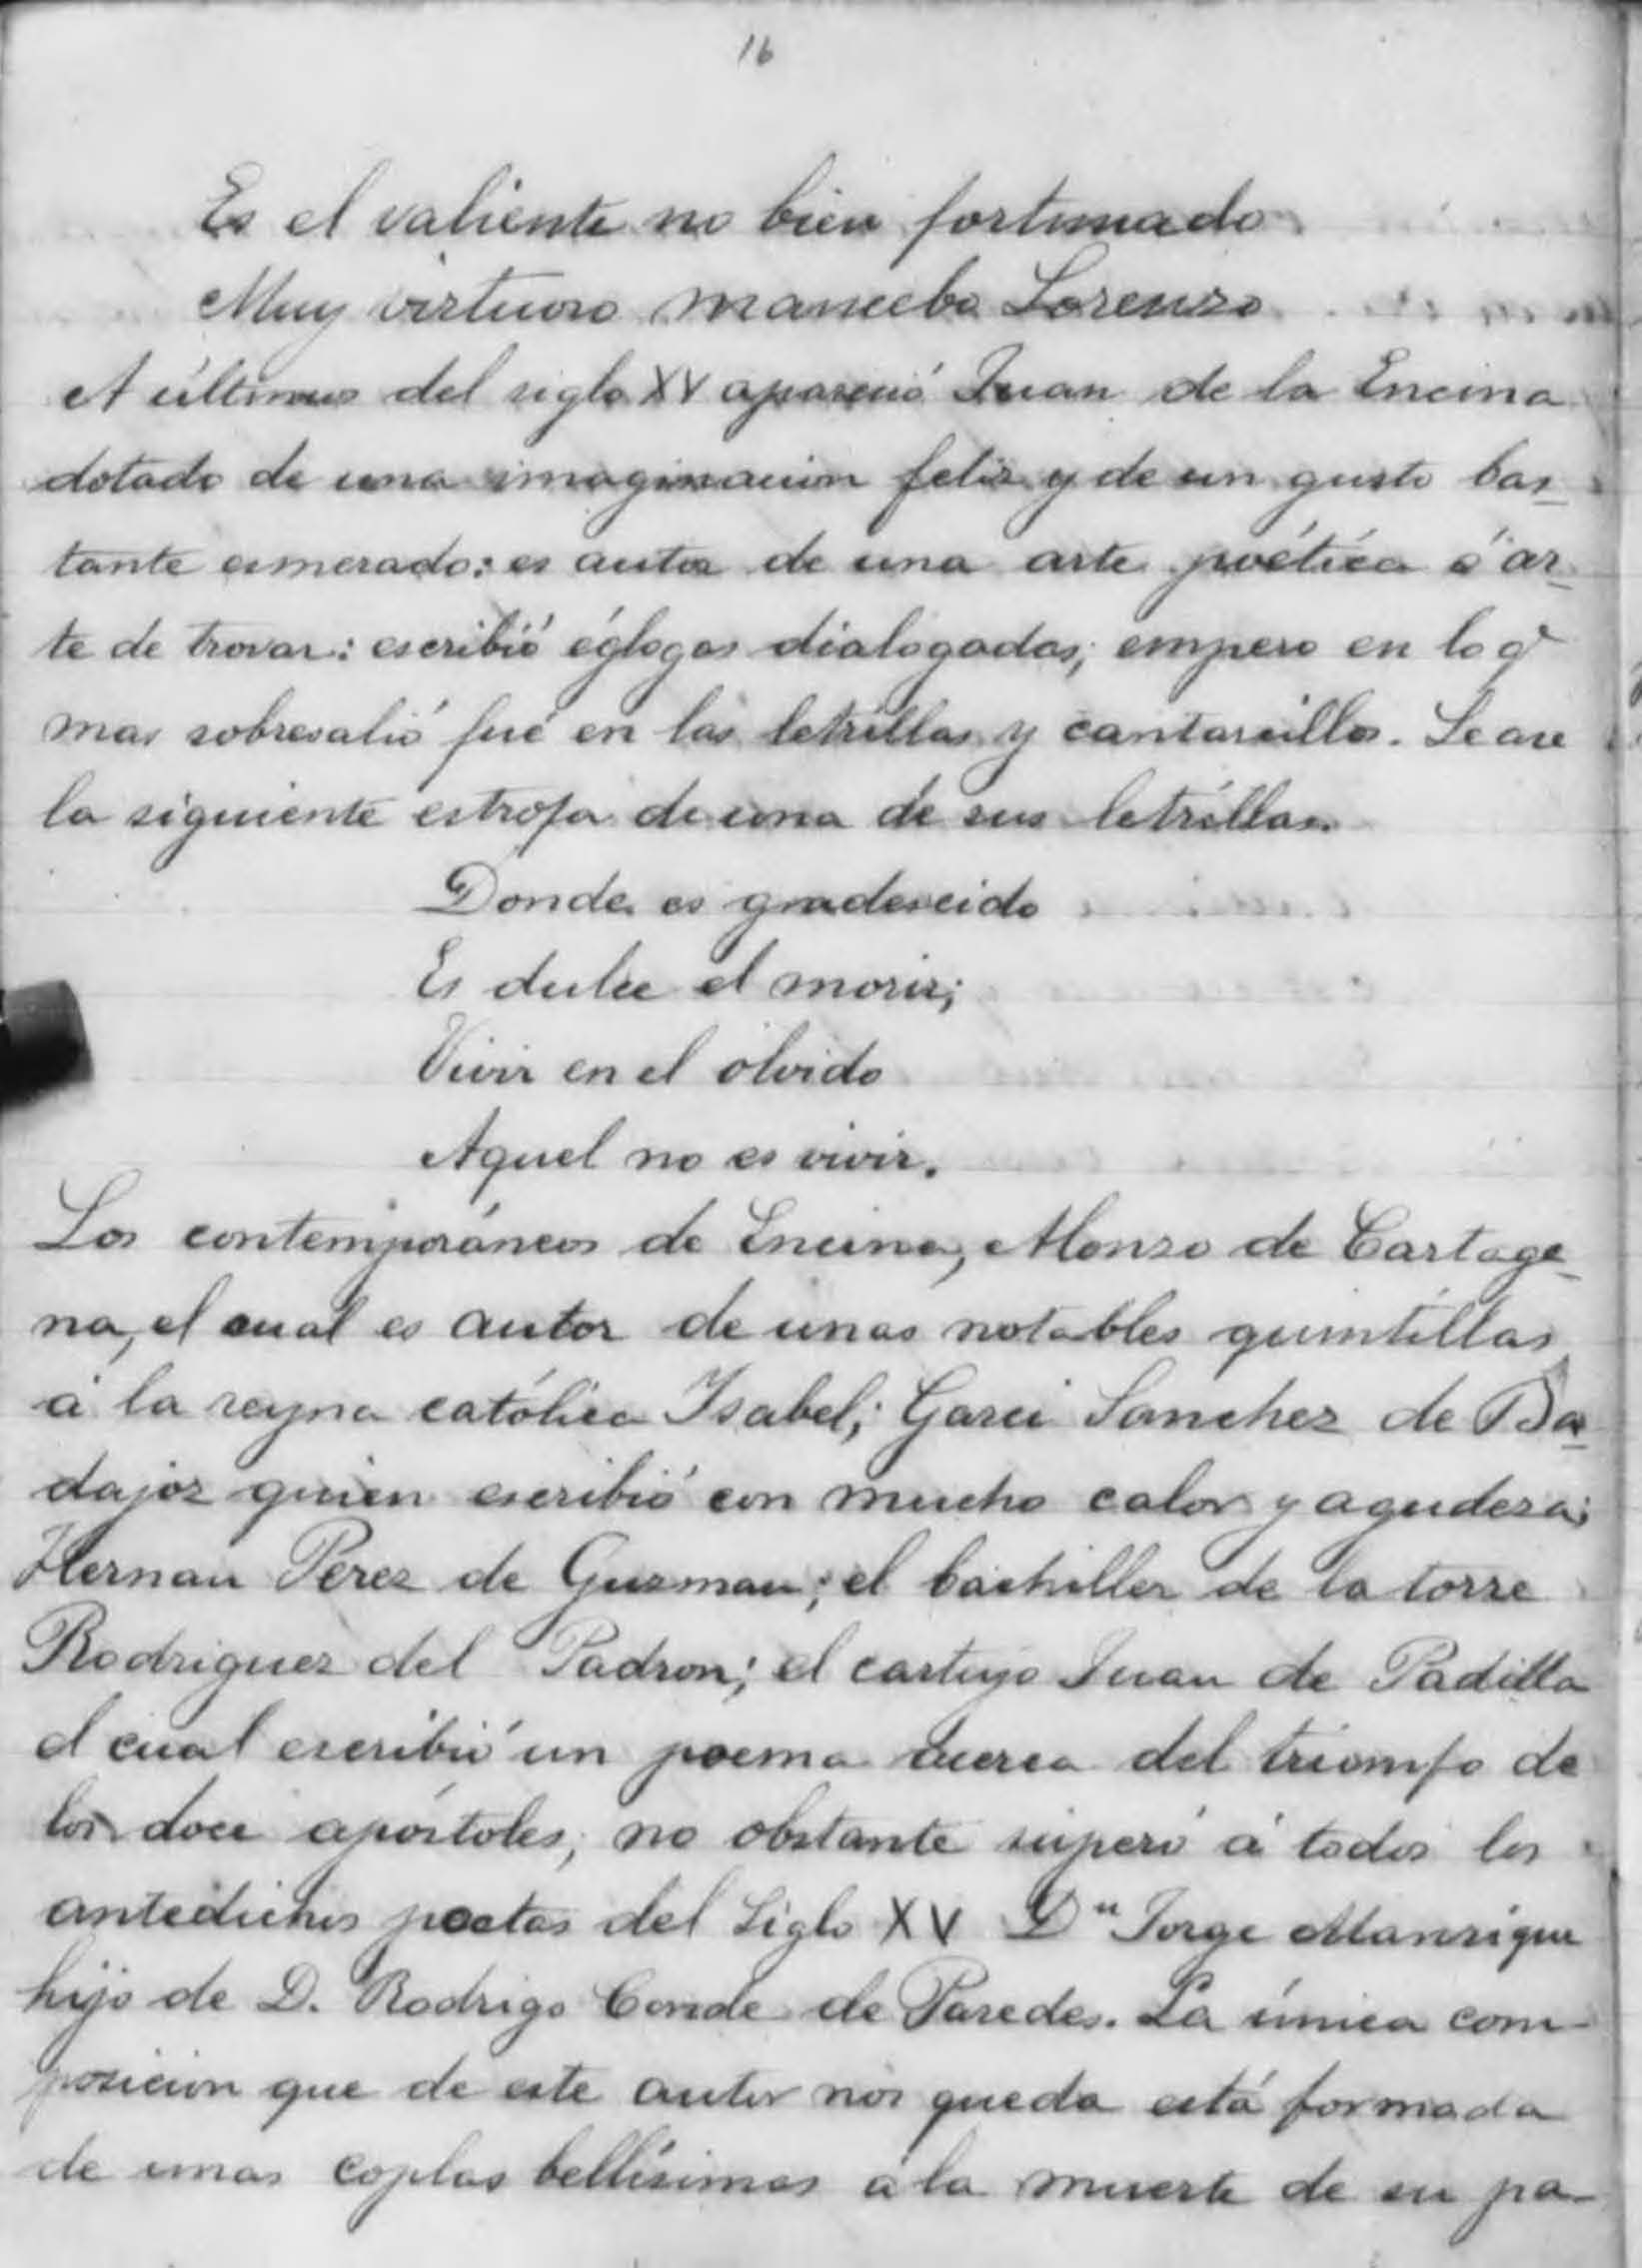 16
Es el valiente no bien fortunado
Muy virtuoso mancebo Lorenzo
A últimos del siglo XV apareció Juan de la Encina
dotado de una imaginacion feliz y de un gusto bas_
tante esmerado: es autor de una arte poética ó ar_
te de trovar: escribió églogas dialogadas; empero en lo q.e
mas sobresalió fué en las letrillas y cantarcillos. Se are
la siguiente estrofa de una de sus letrillas.
Donde es gradescido
Es dulce el morir;
Vivir en el olvido
Aquel no es vivir.
Los contemporáneos de Encina, Alonso de Cartage_
na, el cual es autor de unas notables quintillas
á la reyna católica Isabel; Garci Sanchez de Ba_
dajoz quien escribió con mucho calor y agudeza;
Hernan Perez de Guzman; el bachiller de la torre
Rodriguez del Padron; el cartujo Juan de Padilla
el cual escribió un poema acerca del triomfo de
los doce apóstoles, no obstante superó á todos los
antedichos poetas del Siglo XV Dn Jorge Manrique
hijo de D. Rodrigo Conde de Paredes. La única com-
posicion que de este autor nos queda está formada
de unas coplas bellísimas á la muerte de su pa-